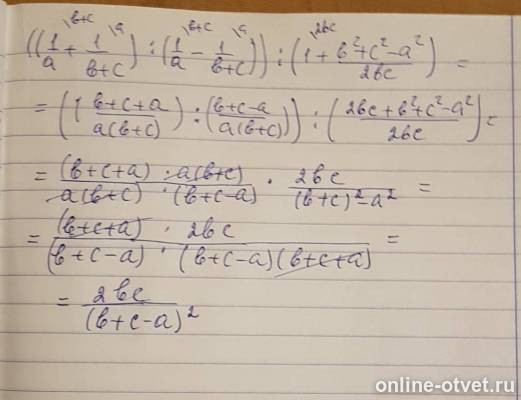 \b+c \a \b+c \a \2bc
((1/a + 1/(b+c)) : (1/a - 1/(b+c))) : (1 + (b²+c²-a²)/2bc) =
= (((b+c+a)/a(b+c)) : ((b+c-a)/a(b+c))) : ((2bc+b²+c²-a²)/2bc) =
= (b+c+a) · a(b+c)/a(b+c) · (b+c-a) · 2bc/((b+c)²-a²) =
= (b+c+a) · 2bc/(b+c-a) · (b+c-a)(b+c+a) =
= 2bc/(b+c-a)²
online-otvet.ru